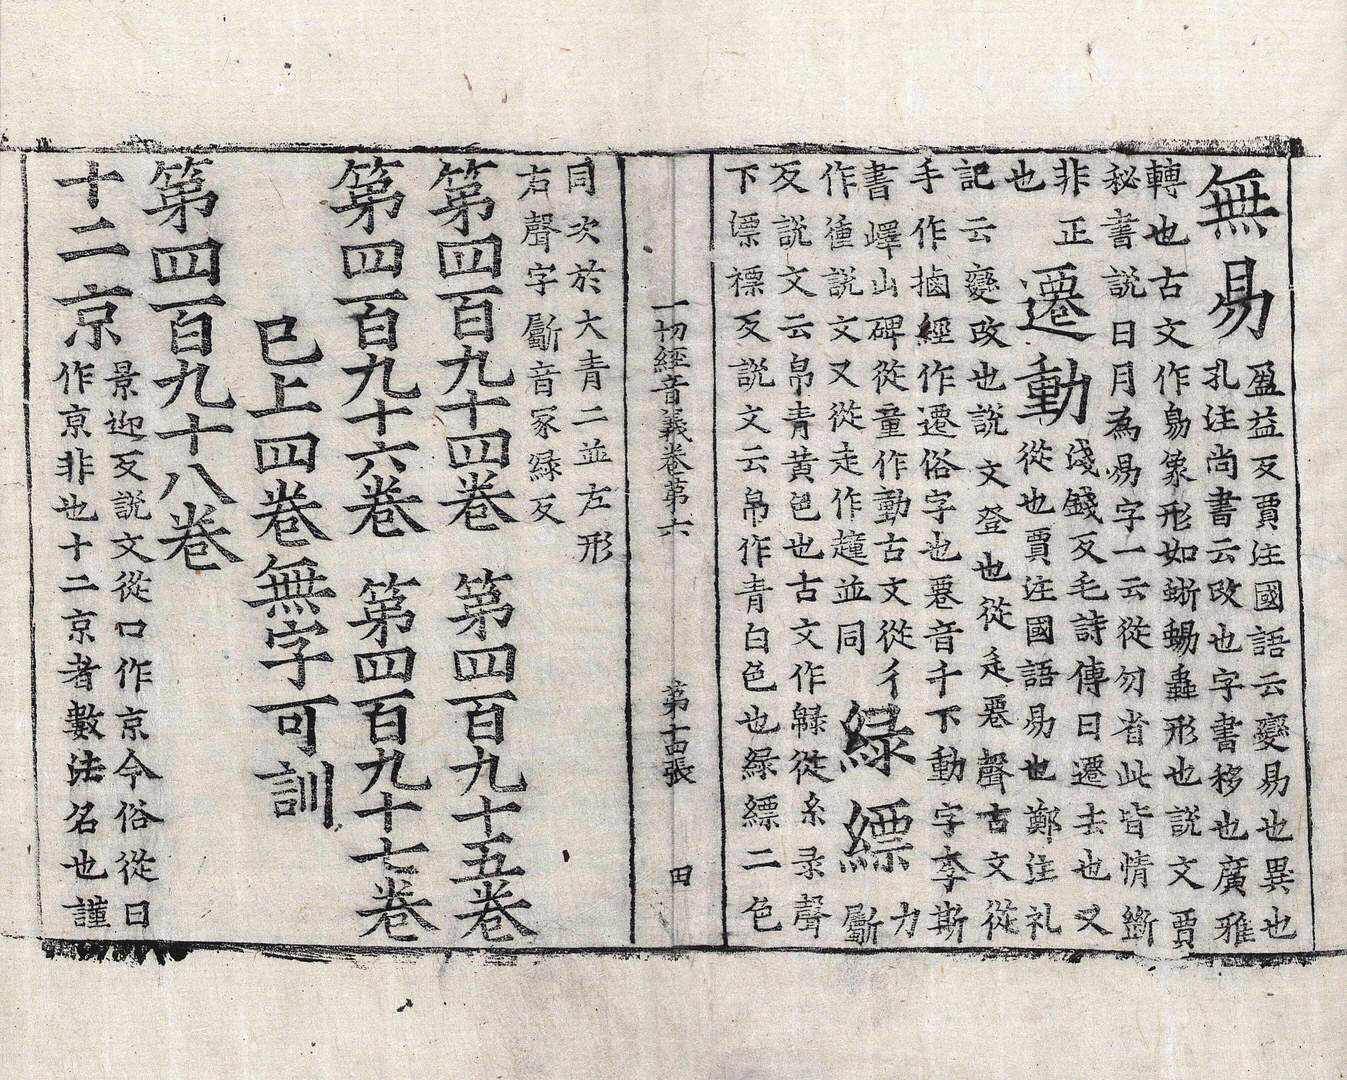 無易
盈益反賈注國語云變易也異也
孔注尚書云改也字書移也廣雅
轉也古文作易象形如蜥蜴蟲形也說文賈
秘書說日月為易字一云從勿省此皆情斷
非正
也
遷動
淺錢反毛詩傳曰遷去也又
從也賈注國語易也鄭注礼
記云變改也說文登也從辵䙴聲古文從
手作拪經作遷俗字也䙴音千下動字李斯
書嶧山碑從童作動古文從彳
作㣫說文又從走作䞒並同
緑縹
力
斸
反說文云帛青黃色也古文作從糸录聲
下漂褾反說文云帛作青白色也緑縹二色
一切經音義卷第六 第十四張 田
同次於大青二並左形
右聲字斸音冢緑反
第四百九十四卷 第四百九十五卷
第四百九十六卷 第四百九十七卷
已上四卷無字可訓
第四百九十八卷
十二京
景迎反說文從口作京今俗從日
作亰非也十二京者數法名也謹